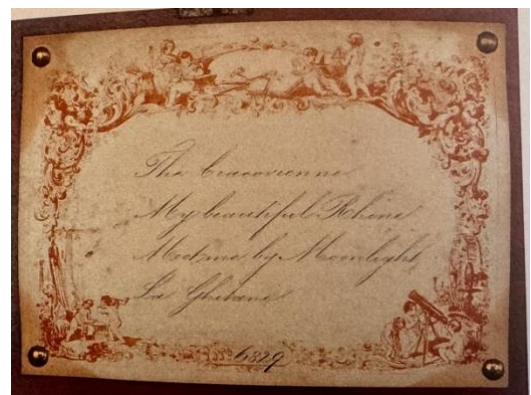 The Cracovienne
My beautiful Rhine
Meet me by Moonlight
La Ghitana
6829